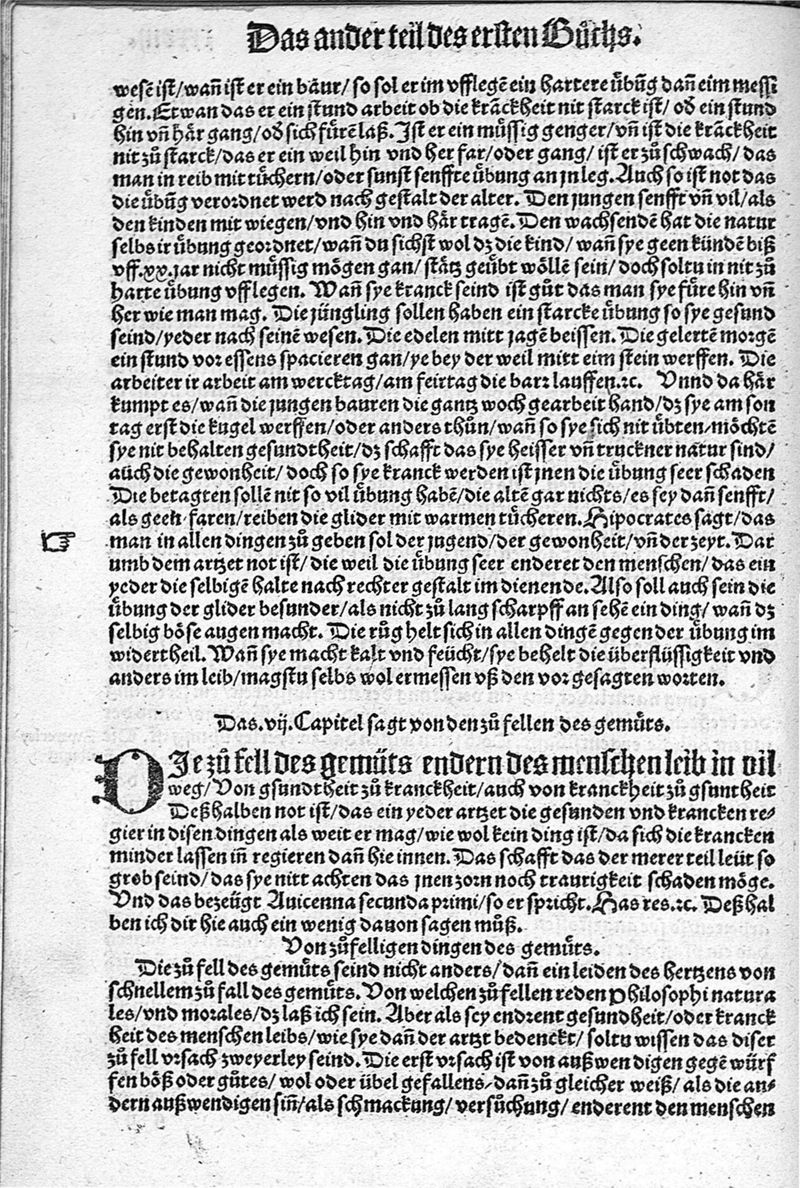 Das ander teil des ersten Bůchs.
wesē ist/wañ ist er ein bäur/so sol er im vfflegē ein hartere übūg dañ eim messi
gen. Etwan das er ein stund arbeit ob die krāckheit nit starck ist/ od ein stund
hin vñ här gang/od sich fürē laß. Ist er ein müssig genger/vñ ist die krāckheit
nit zů starck/das er ein weil hin vnd her far/oder gang/ ist er zů schwach/ das
man in reib mit tüchern/oder sunst senffte übung an jn leg. Auch so ist not das
die übūg verordnet werd nach gestalt der alter. Den jungen senfft vñ vil/als
den kinden mit wiegen/vnd hin vnd här tragē. Den wachsendē hat die natur
selbs ir übung geordnet/wañ du sichst wol dz die kind/ wañ sye geen kündē biß
vff.xx.jar nicht müssig mögen gan/ stätz geübt wöllē sein/ doch soltu in nit zů
harte übung vfflegen. Wañ sye kranck seind ist gůt das man sye füre hin vñ
her wie man mag. Die jüngling sollen haben ein starcke übung so sye gesund
seind/yeder nach seinē wesen. Die edelen mitt jagē beissen. Die gelertē morgē
ein stund vor essens spacieren gan/ye bey der weil mitt eim stein werffen. Die
arbeiter ir arbeit am wercktag/am feirtag die barr lauffen.ꝛc. Vnnd da här
kumpt es/wañ die jungen bauren die gantz woch gearbeit hand/dz sye am son
tag erst die kugel werffen/oder anders thůn/wañ so sye sich nit übten/möchtē
sye nit behalten gesundtheit/dz schafft das sye heisser vñ truckner natur sind/
auch die gewonheit/ doch so sye kranck werden ist jnen die übung seer schaden
Die betagten sollē nit so vil übung habē/die altē gar nichts/es sey dañ senfft/
als geen faren/reiben die glider mit warmen tücheren. Hipocrates sagt/das
man in allen dingen zů geben sol der jugend/der gewonheit/vñ der zeyt. Dar
umb dem artzet not ist/die weil die übung seer enderet den menschen/das ein
yeder die selbigē halte nach rechter gestalt im dienende. Also soll auch sein die
übung der glider besunder/als nicht zů lang scharpff an sehē ein ding/ wañ dz
selbig böse augen macht. Die růg helt sich in allen dingē gegen der übung im
widertheil. Wañ sye macht kalt vnd feücht/sye behelt die überflüssigkeit vnd
anders im leib/magstu selbs wol ermessen vß den vor gesagten worten.
Das.vij.Capitel sagt von den zů fellen des gemüts.
DIe zů fell des gemüts endern des menschen leib in vil
weg/Von gsundtheit zů kranckheit/auch von kranckheit zů gsuntheit
Deßhalben not ist/das ein yeder artzet die gesunden vnd krancken re-
gier in disen dingen als weit er mag/wie wol kein ding ist/da sich die krancken
minder lassen iñ regieren dañ hie innen. Das schafft das der merer teil leüt so
grob seind/das sye nitt achten das jnen zorn noch traurigkeit schaden möge.
Vnd das bezeügt Auicenna secunda primi/so er spricht. Has res.ꝛc. Deßhal
ben ich dir hie auch ein wenig dauon sagen můß.
Von zůfelligen dingen des gemüts.
Die zů fell des gemüts seind nicht anders/dañ ein leiden des hertzens von
schnellem zů fall des gemüts. Von welchen zů fellen reden philosophi natura
les/vnd morales/dz laß ich sein. Aber als sey endrent gesundheit/oder kranck
heit des menschen leibs/wie sye dañ der artzt bedenckt/ soltu wissen das diser
zů fell vrsach zweyerley seind. Die erst vrsach ist von außwendigen gegē würf
fen böß oder gůtes/ wol oder übel gefallens/dañ zů gleicher weiß/ als die an-
dern außwendigen siñ/als schmackung/ versůchung/ enderent den menschen